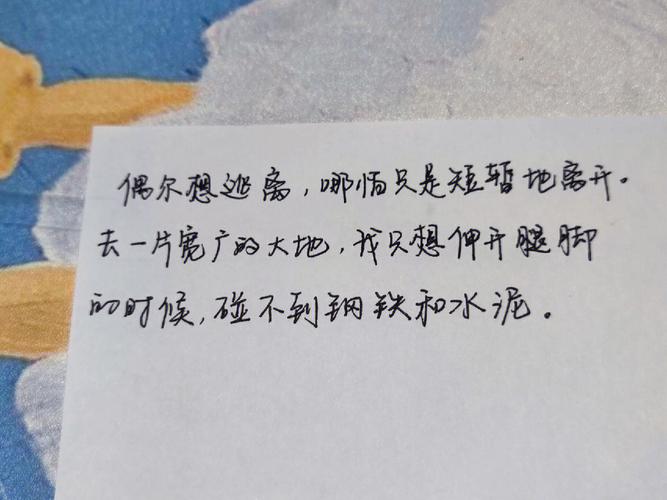 偶尔想逃离，哪怕只是短暂地离开。
去一片宽广的大地，我只想伸开腿脚
的时候，碰不到钢铁和水泥。